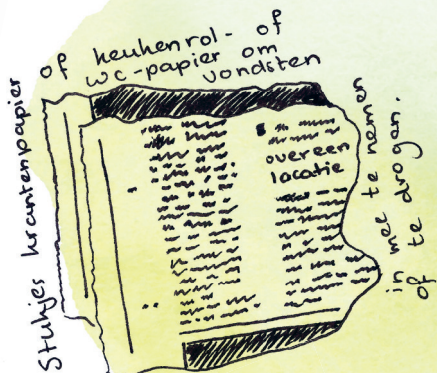 Stukjes krantenpapier
of keukenrol- of
wc-papier om
vondsten
in mee te nemen
of te drogen.
over een
locatie